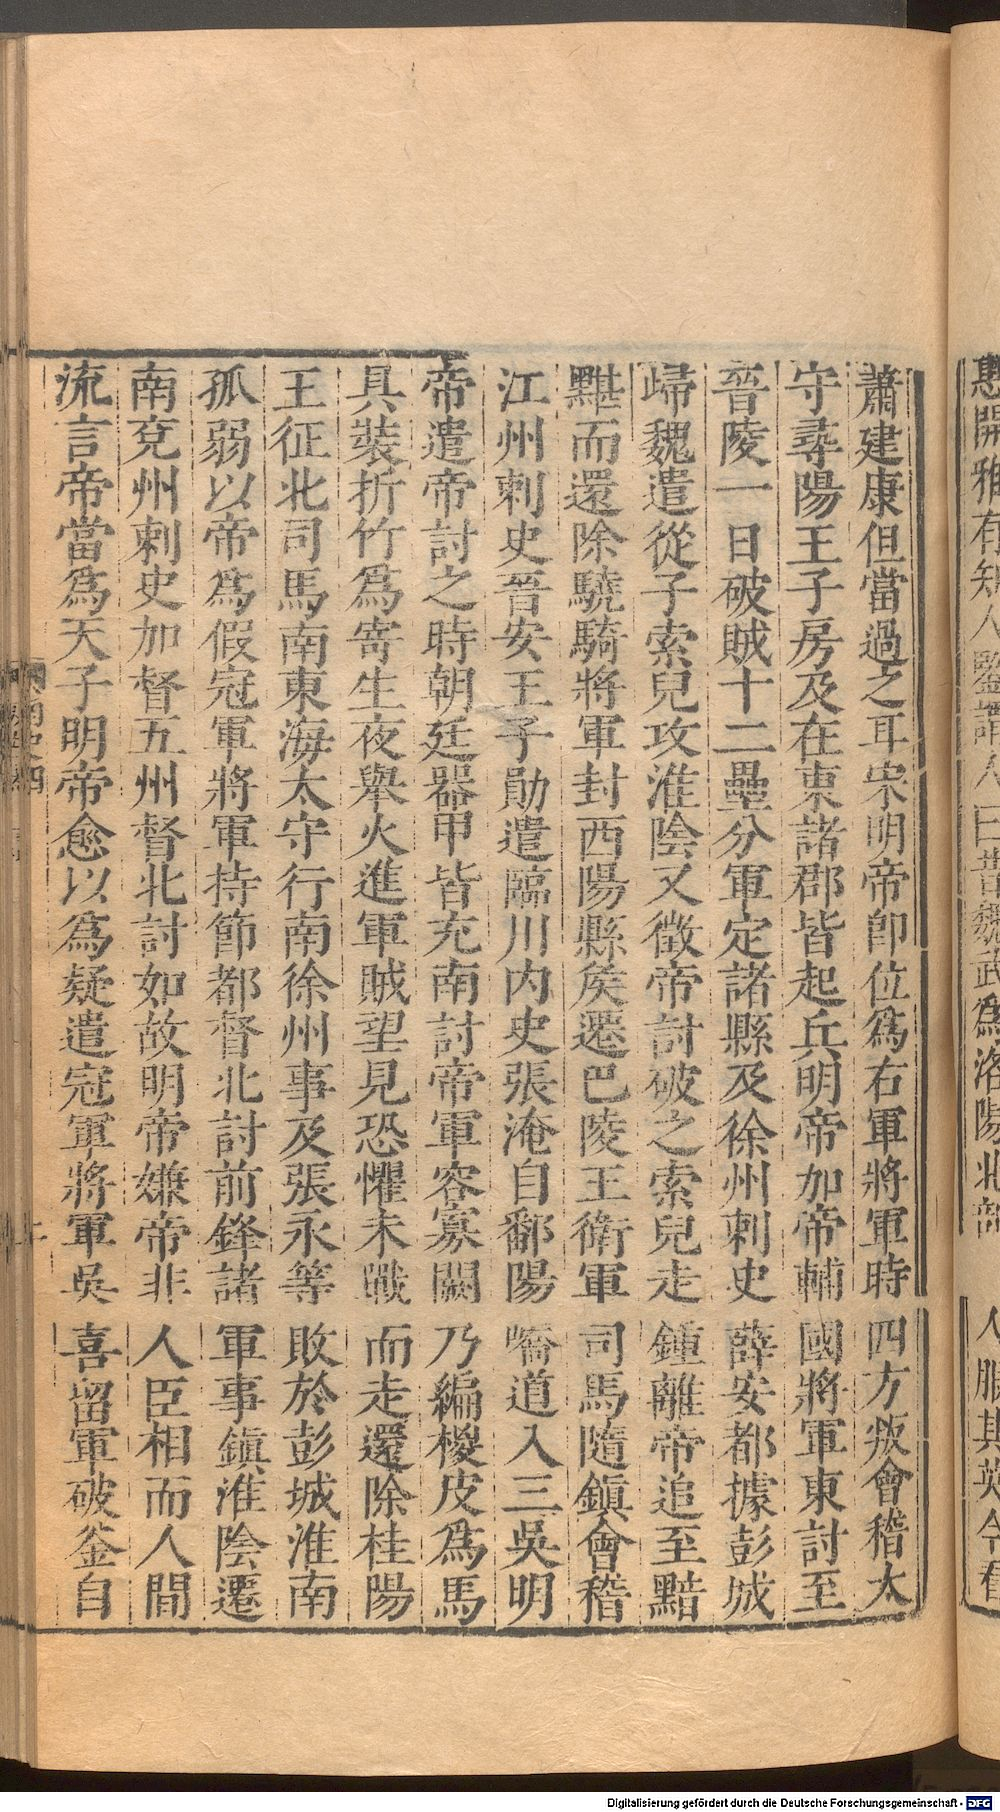 惠開雅有知人鑒謂人曰昔魏武爲洛陽北部人服其英今看
蕭建康但當過之耳宋明帝卽位爲右軍將軍時四方叛會稽太
守尋陽王子房及在東諸郡皆起兵明帝加帝輔國將軍東討至
晉陵一日破賊十二壘分軍定諸縣及徐州刺史薛安都據彭城
歸魏遣從子索兒攻淮陰又徵帝討破之索兒走鍾離帝追至黯
黮而還除驍騎將軍封西陽縣矦遷巴陵王衛軍司馬隨鎮會稽
江州刺史晉安王子勛遣臨川内史張淹自鄱陽嶠道入三吳明
帝遣帝討之時朝廷器甲皆充南討帝軍容寡闕乃編椶皮爲馬
具裝折竹爲寄生夜舉火進軍賊望見恐懼未戰而走還除桂陽
王征北司馬南東海太守行南徐州事及張永等敗於彭城淮南
孤弱以帝爲假冠軍將軍持節都督北討前鋒諸軍事鎮淮陰遷
南兗州刺史加督五州督北討如故明帝嫌帝非人臣相而人間
流言帝當爲天子明帝愈以爲疑遣冠軍將軍吳喜留軍破釜自
Digitalisierung gefördert durch die Deutsche Forschungsgemeinschaft - DFG